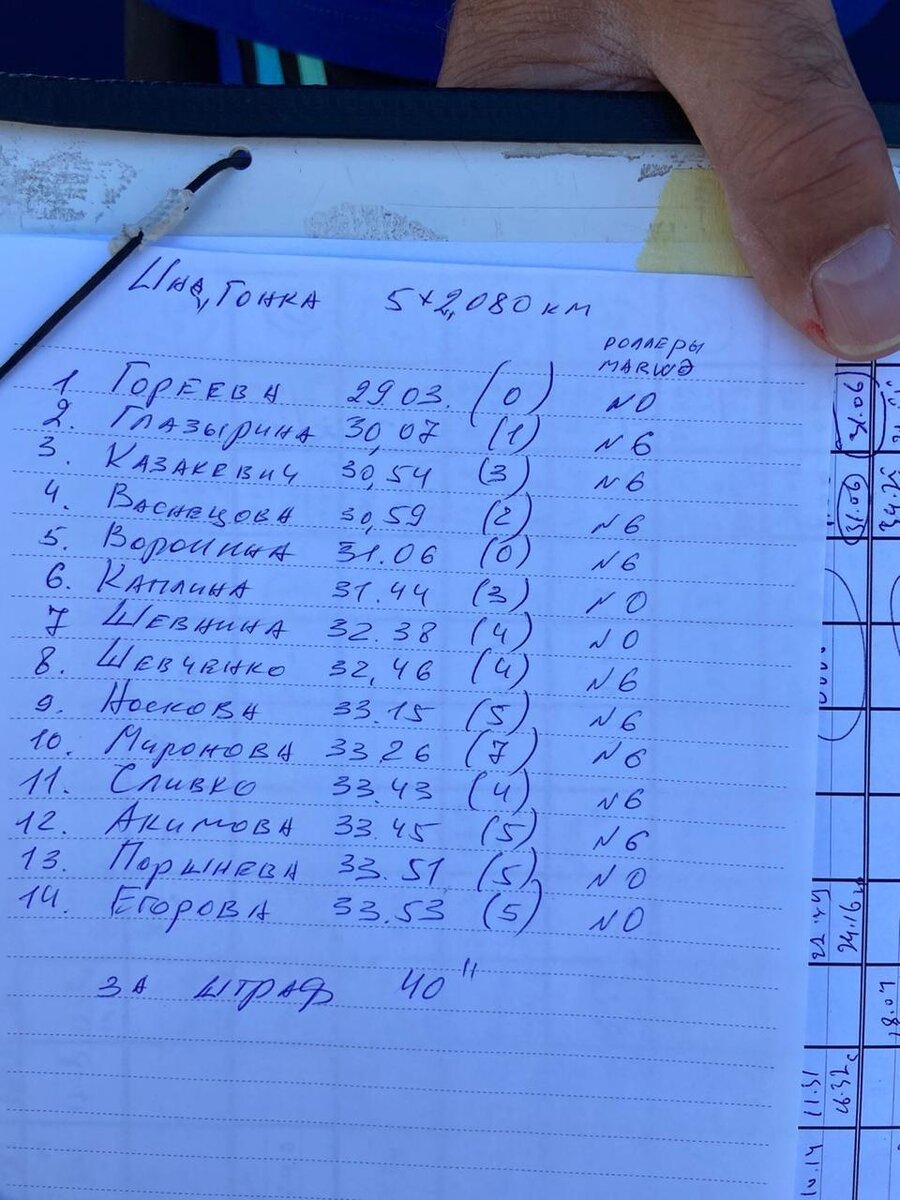 Инд, Гонка 5×2,080 км
РОЛЛЕРЫ
MARWЭ
1 Гореева 29 03. (0) N 0
2. Глазырина 30,07 (1) N 6
3. Казакевич 30,54 (3) N 6
4. Васнецова 30,59 (2) N 6
5. Воронина 31.06 (0) N 6
6. Каплина 31.44 (3) N 0
7 Шевнина 32.38 (4) N 0
8. Шевченко 32,46 (4) N 6
9. Носкова 33.15 (5) N 6
10. Миронова 33 26 (7) N 6
11. Сливко 33.43 (4) N 6
12. Акимова 33.45 (5) N 6
13. Поршнева 33.51 (5) N 0
14. Егорова 33.53 (5) N 0
за штраф 40"
31.09
34.25
24.16
18.07
11.31
10.14